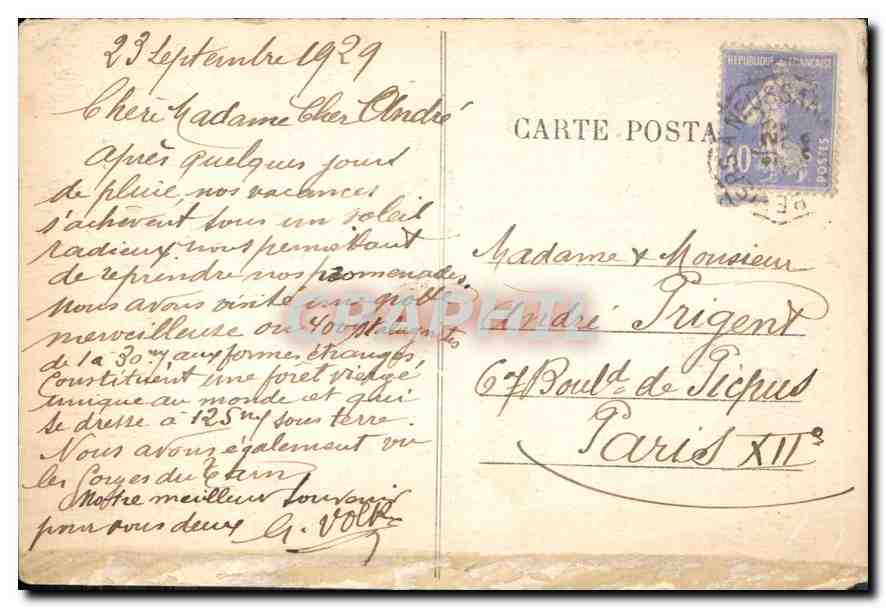 23 Septembre 1929
Chère Madame Cher André
Après quelques jours
de pluie, nos vacances
s'achèvent sous un soleil
radieux nous permettant
de reprendre nos promenades.
Nous avons visité une grotte
merveilleuse où 400 stalagmites
de 1 à 30 m, aux formes étranges,
constituent une forêt vierge
unique au monde et qui
se dresse à 125 m sous terre.
Nous avons également vu
les Gorges du Tarn
Notre meilleur souvenir
pour vous deux G.
CARTE POSTA
REPUBLIQUE FRANÇAISE
40
POSTES
Madame & Monsieur
André Prigent
67 Bould de Picpus
Paris XIIe
CPAPHIL